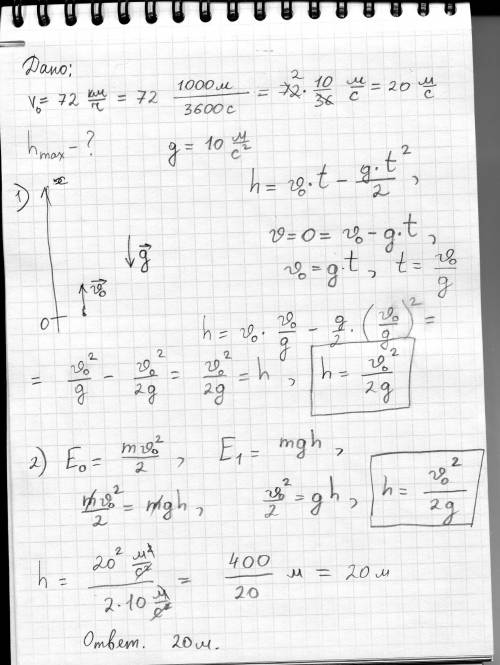 Дано:
v₀ = 72 км/ч = 72 1000м/3600с = 72² · 10/36 м/с = 20 м/с
hmax - ? g = 10 м/с²
1) x h = v₀·t − g·t²/2 ,
g⃗ v = 0 = v₀ − g·t ,
v⃗₀ v₀ = g·t , t = v₀/g
0 h = v₀ · v₀/g − g/2 · (v₀/g)² =
= v₀²/g − v₀²/2g = v₀²/2g = h , h = v₀²/2g
2) E₀ = mv₀²/2 , E₁ = mgh ,
mv₀²/2 = mgh , v₀²/2 = gh , h = v₀²/2g
h = 20² м²/с² / 2·10 м/с² = 400/20 м = 20 м
Ответ. 20 м.